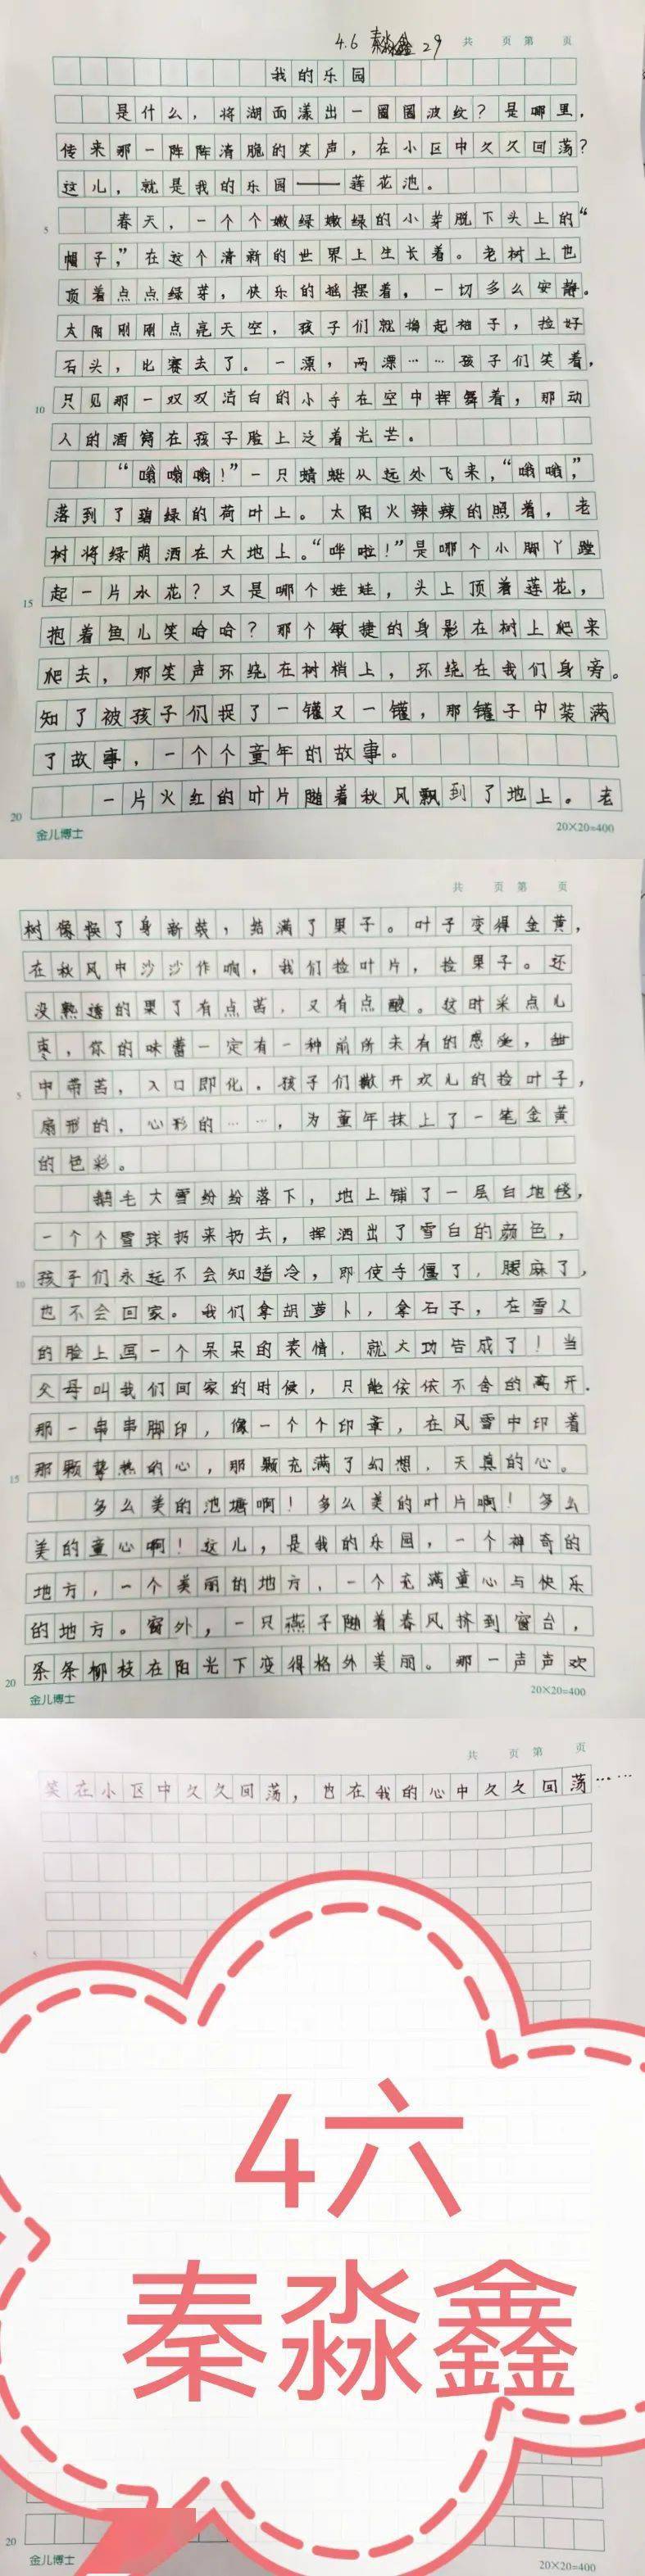 4.6 秦淼鑫 29 共 页 第 页
我的乐园
是什么，将湖面漾出一圈圈波纹？是哪里，
传来那一阵阵清脆的笑声，在小区中久久回荡？
这儿，就是我的乐园——莲花池。
5 春天，一个个嫩绿嫩绿的小芽脱下头上的“
帽子，”在这个清新的世界上生长着。老树上也
顶着点点绿芽，快乐的摇摆着，一切多么安静。
太阳刚刚点亮天空，孩子们就撸起袖子，捡好
石头，比赛去了。一漂，两漂……孩子们笑着，
10 只见那一双双洁白的小手在空中挥舞着，那动
人的酒窝在孩子脸上泛着光芒。
“嗡嗡嗡！”一只蜻蜓从远处飞来，“嗡嗡，”
落到了碧绿的荷叶上。太阳火辣辣的照着，老
树将绿荫洒在大地上。“哗啦！”是哪个小脚丫蹚
15 起一片水花？又是哪个娃娃，头上顶着莲花，
抱着鱼儿笑哈哈？那个敏捷的身影在树上爬来
爬去，那笑声环绕在树梢上，环绕在我们身旁。
知了被孩子们捉了一罐又一罐，那罐子中装满
了故事，一个个童年的故事。
20 一片火红的叶片随着秋风飘到了地上。老
金儿博士 20×20=400
共 页 第 页
树像换了身新装，结满了果子。叶子变得金黄，
在秋风中沙沙作响，我们捡叶片，捡果子。还
没熟透的果子有点苦，又有点酸。这时采点儿
枣，你的味蕾一定有一种前所未有的感受，甜
5 中带苦，入口即化。孩子们撒开欢儿的捡叶子，
扇形的，心形的……，为童年抹上了一笔金黄
的色彩。
鹅毛大雪纷纷落下，地上铺了一层白地毯，
一个个雪球扔来扔去，挥洒出了雪白的颜色，
10 孩子们永远不会知道冷，即使手僵了，腿麻了，
也不会回家。我们拿胡萝卜，拿石子，在雪人
的脸上画一个呆呆的表情，就大功告成了！当
父母叫我们回家的时候，只能依依不舍的离开。
那一串串脚印，像一个个印章，在风雪中印着
15 那颗挚热的心，那颗充满了幻想，天真的心。
多么美的池塘啊！多么美的叶片啊！多么
美的童心啊！这儿，是我的乐园，一个神奇的
地方，一个美丽的地方，一个充满童心与快乐
的地方。窗外，一只燕子随着春风挤到窗台，
20 条条柳枝在阳光下变得格外美丽。那一声声欢
金儿博士 20×20=400
共 页 第 页
笑在小区中久久回荡，也在我的心中久久回荡……
5
4六
秦淼鑫
20
金儿博士 20×20=400